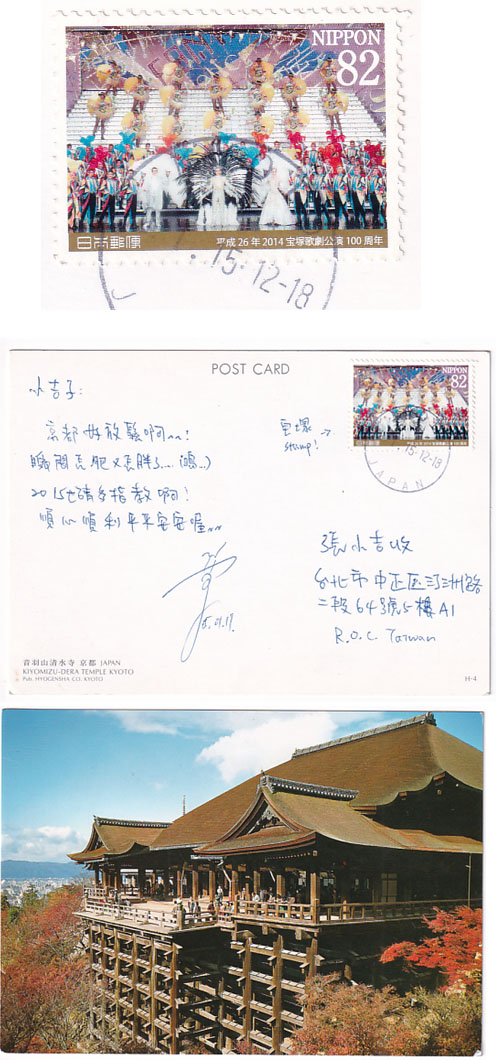 NIPPON
82
日本郵便
平成26年 2014 宝塚歌劇公演100周年
.15.12-18
J
POST CARD
NIPPON
82
日本郵便
平成26年 2014 宝塚歌劇公演100周年
.15.12-18
JAPAN
小吉子:
京都好放鬆啊~~!
瞬間 又 胖了....)
2015也請多指教啊!
順心順利平平安安喔~~
stamp!
張小吉收
台北市中正區汀洲路
二段64號5樓A1
R.O.C Taiwan
音羽山清水寺 京都 JAPAN
KIYOMIZU-DERA TEMPLE KYOTO
Pub. HYOGENSHA CO. KYOTO
H-4